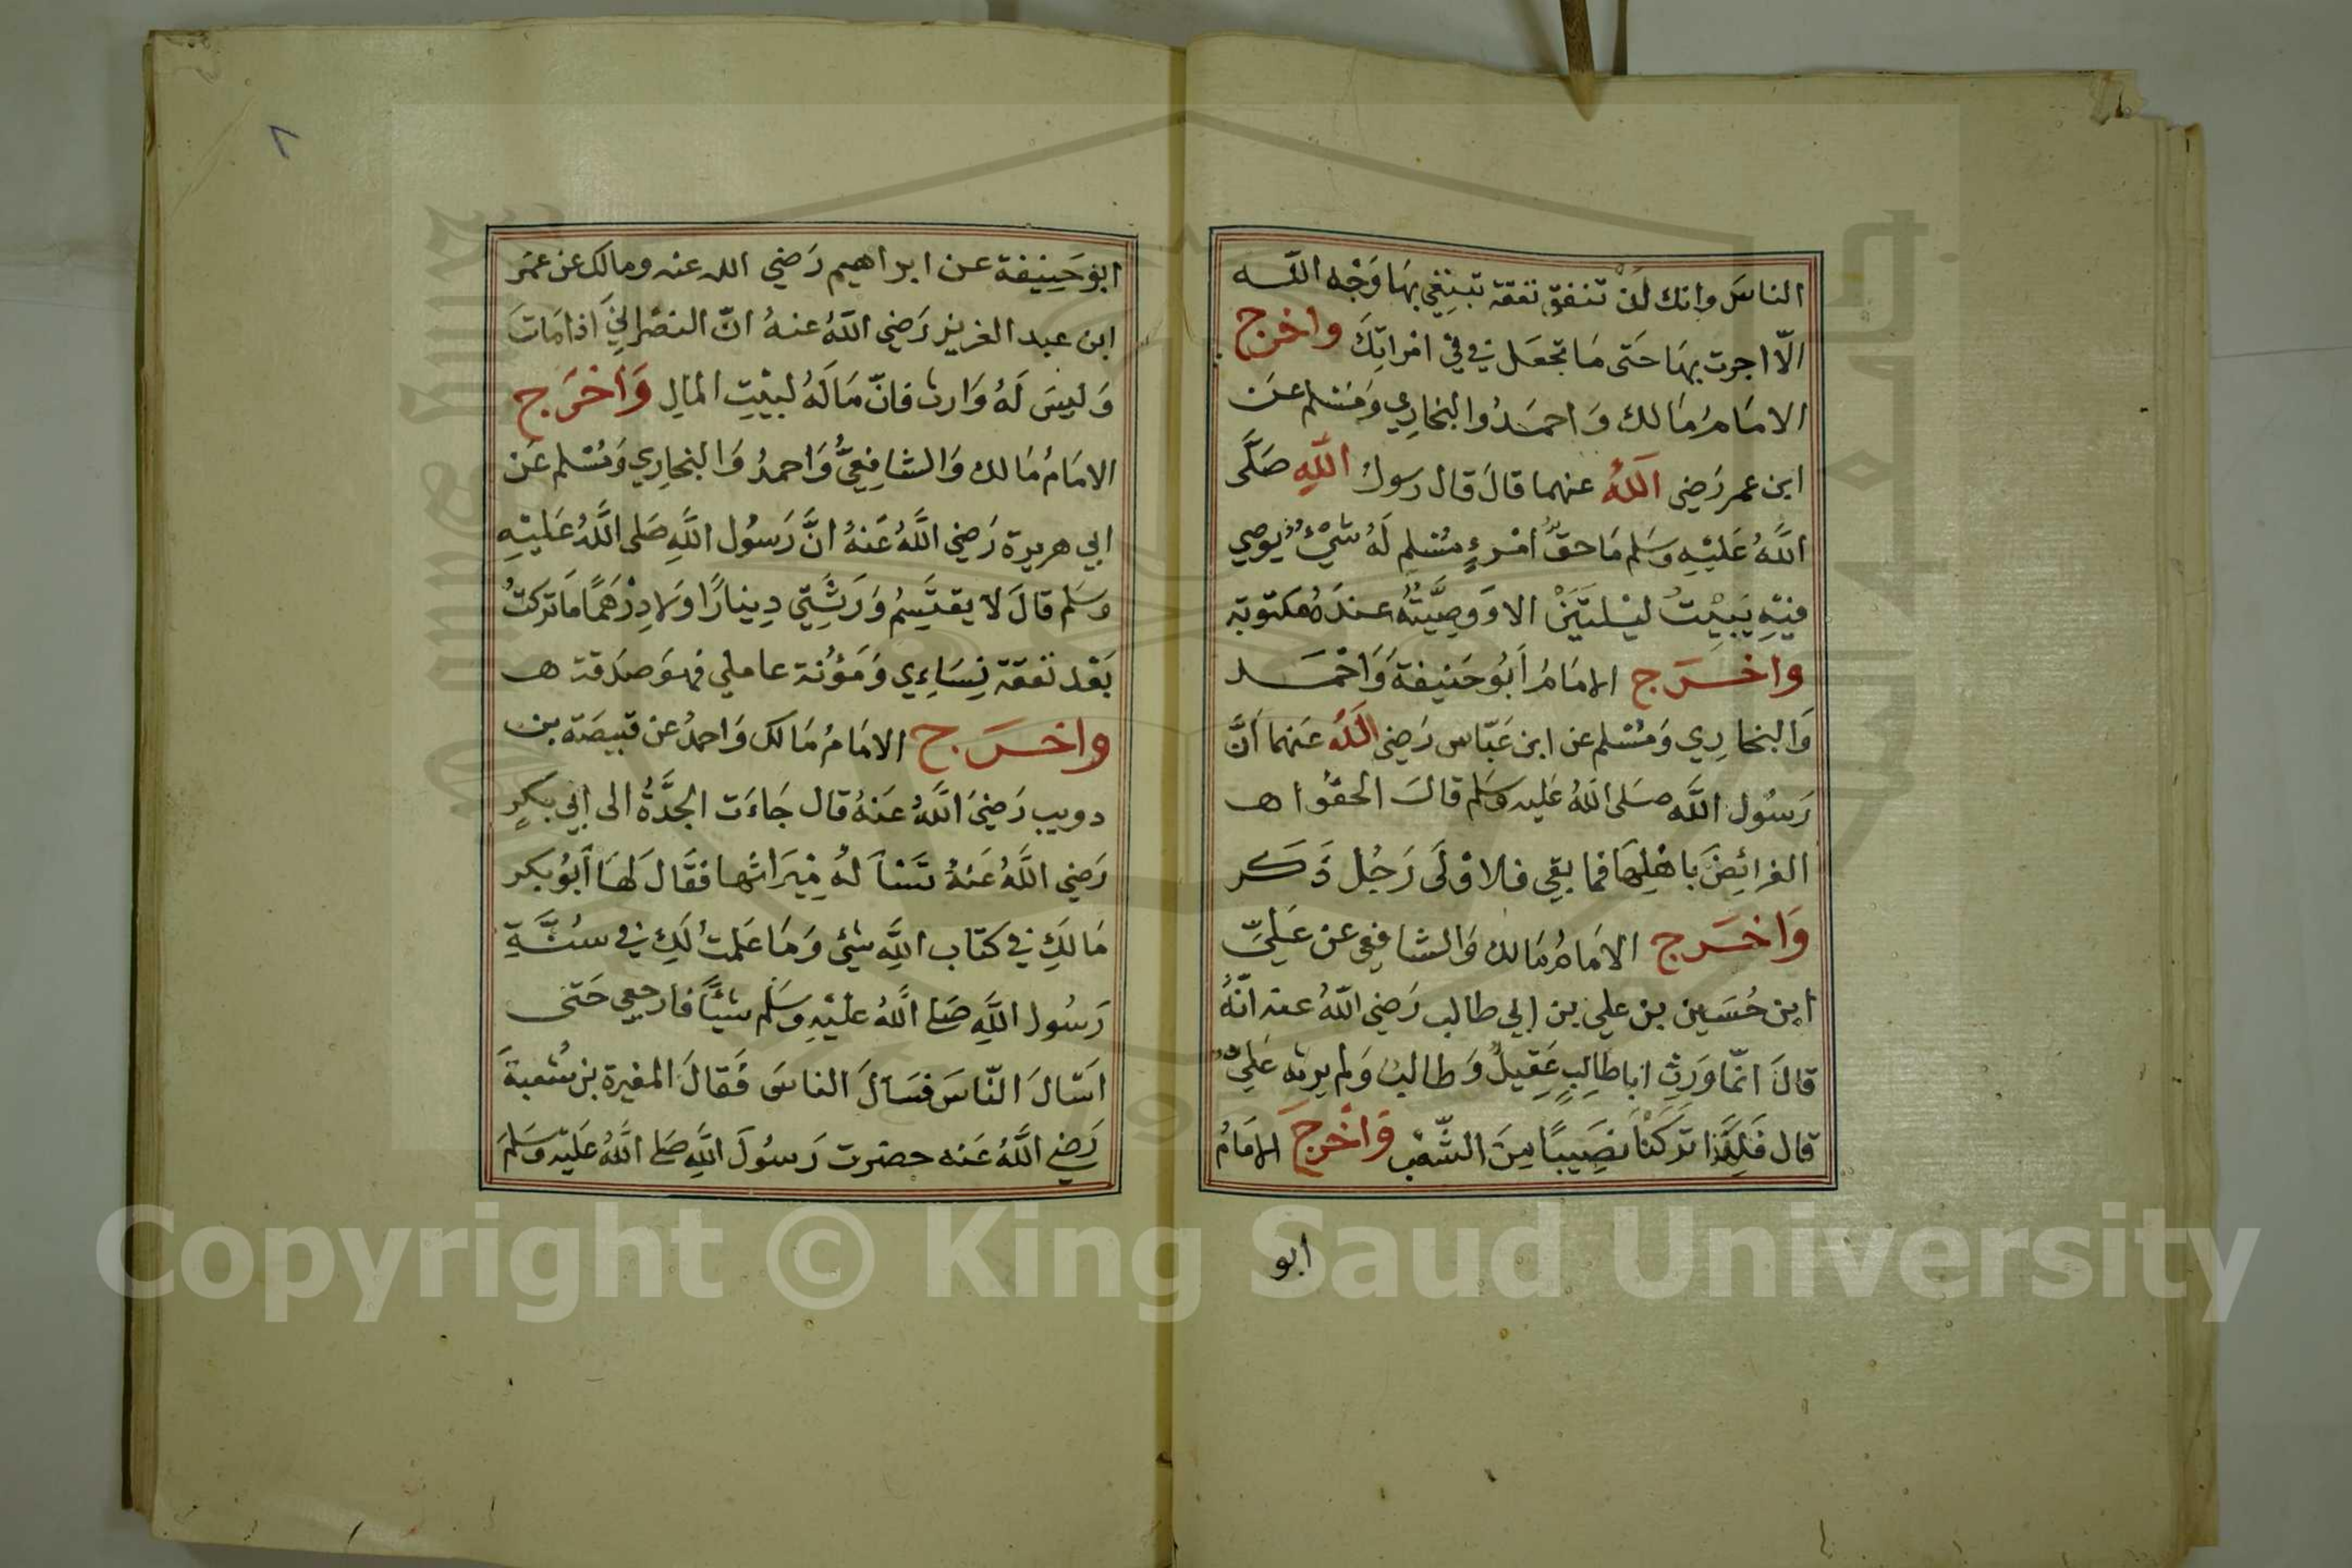 الناسَ وانك لَنْ تنفق نفقة تبتغي بهَا وَجْه اللـــه
الّا اجرت بهَا حَتى مَا تجعَل في فيْ امْراتِكَ واخرج
الامَامُ مَالك وَاحمَدُ والبخارِي وَمُسْلم عَنْ
ابن عمر رَضي اللهُ عنهما قالَ قال رسولُ اللهِ صَلَّى
اللَّهُ عَليْهِ وسَلم مَا حقُّ امْرءٍ مُسْلمٍ لَهُ شيْءٌ يُوصِي
فيْهِ يَبيْتُ ليْلتَيَنْ الا وَوصِيَّتُهُ عندَهُ مكتوبَة
واخــرَج الامَامُ أَبُو حَنيفةَ وَاحْمَــد
وَالبخارِي وَمُسْلم عن ابن عَبّاس رَضي اللَّهُ عَنهما اَنَّ
رَسُول اللَّه صَلى اللهُ عَليه وسَلم قالَ الحقُوا هـ
الفرائِضَ بأهْلِهَا فما بقي فلاوْلَى رَجُل ذَكَر
وَاخـرَج الامَامُ مَالك وَالشافِعي عن عَليّ
ابن حُسَين بن علي بن ابي طالب رَضي اللهُ عنه انّهُ
قالَ انّما وَرِثَ ابا طالِبٍ عَقيلٌ وَطالبٌ وَلم يرثه عَليٌّ
قال فَلِهَذا تَرَكْنَا نصَيِبًا مِنَ الشِّعْب وَاخْرجَ الامَامُ
ابو
٨
ابوُ حَنِيفة عن ابراهيم رَضي الله عنه ومالك عن عمَر
ابن عبد العزيز رَضي اللهُ عنهُ انّ النصْرانيَ اذا مَاتَ
وَليسَ لَهُ وَارث فانّ مَالَهُ لبيْتِ المالِ وَاخرَج
الامَامُ مَالك وَالشافِعِيُّ وَاحمدُ وَالبخارِي وَمُسْلم عَن
ابي هريرة رَضي اللَّهُ عَنهُ انَّ رَسُول اللَّهِ صَلى اللَّهُ عَليْهِ
وسَلم قالَ لا يقتَسِمُ وَرَثَتِي دِينارًا وَلا دِرْهَمًا مَا تركتُ
بَعْد نفقة نِسَاءِي وَمَؤُنة عاملي فهوَ صدَقة هـ
واخـرَج الامَامُ مَالك وَاحمدُ عن قبيصَة بن
دويب رَضيَ اللَّهُ عَنهُ قال جَاءَت الجدَّةُ الى ابي بَكرٍ
رَضي اللَّهُ عَنهُ تَسْأَلهُ مِيْرَاثها فقَال لَهَا أَبُو بكر
مَالكِ في كتاب اللَّهِ شيْ وَمَا عَلمتُ لَكِ في سُنَّةِ
رَسُول اللَّهِ صَلى اللَّهُ عَليْهِ وسَلم شيْئًا فارجعِي حَتى
اَسْالَ النّاسَ فسَألَ الناسَ فَقالَ المغيرة بن شعبةَ
رَضي اللَّهُ عَنه حضرت رَسُولَ اللَّهِ صَلى اللَّهُ عَليْه وسَلمَ
Copyright © King Saud University